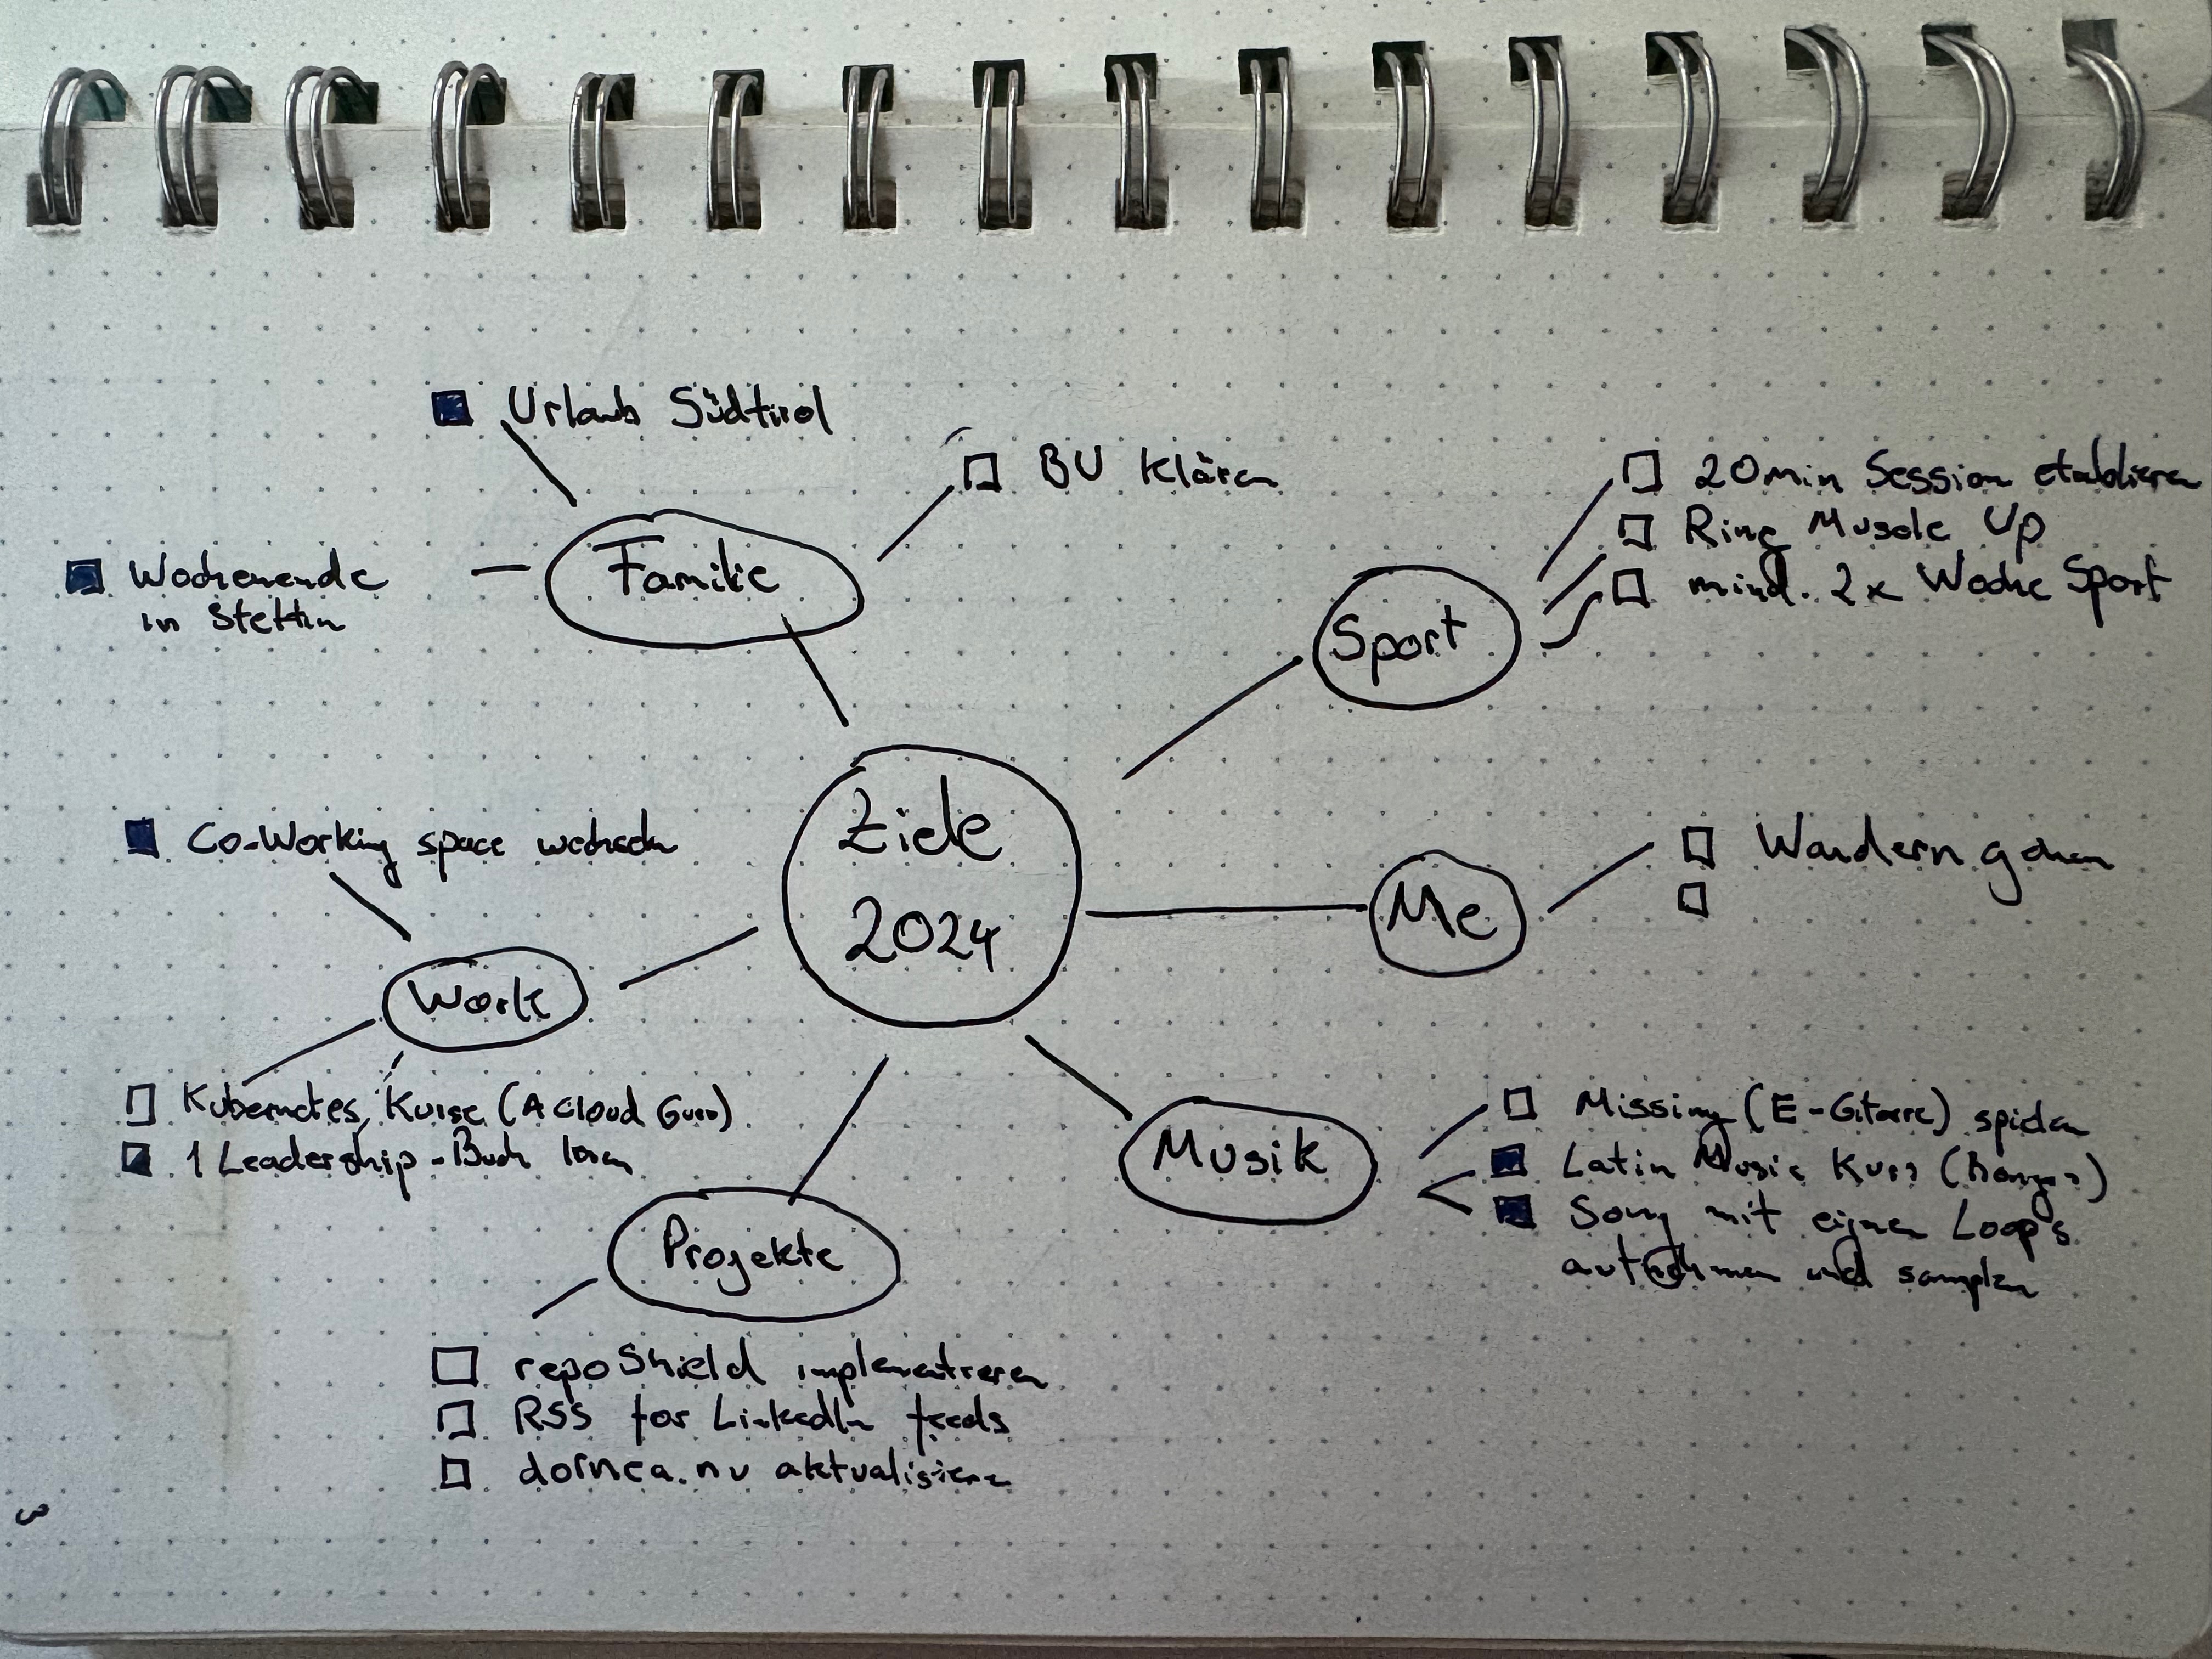 Urlaub Südtirol
BU klären
Familie
Wochenende
in Stettin
20min Session etablieren
Ring Muscle Up
mind. 2x Woche Sport
Sport
Ziele
2024
Co-Working space wechseln
Work
Kubernetes Kurse (A Cloud Guru)
1 Leadership-Buch lesen
Me
Wandern gehen
Musik
Missing (E-Gitarre) spielen
Latin Music Kurs (Bongos)
Song mit eigenen Loops
aufnehmen und samplen
Projekte
repoShield implementieren
RSS for LinkedIn feeds
dornea.nu aktualisieren